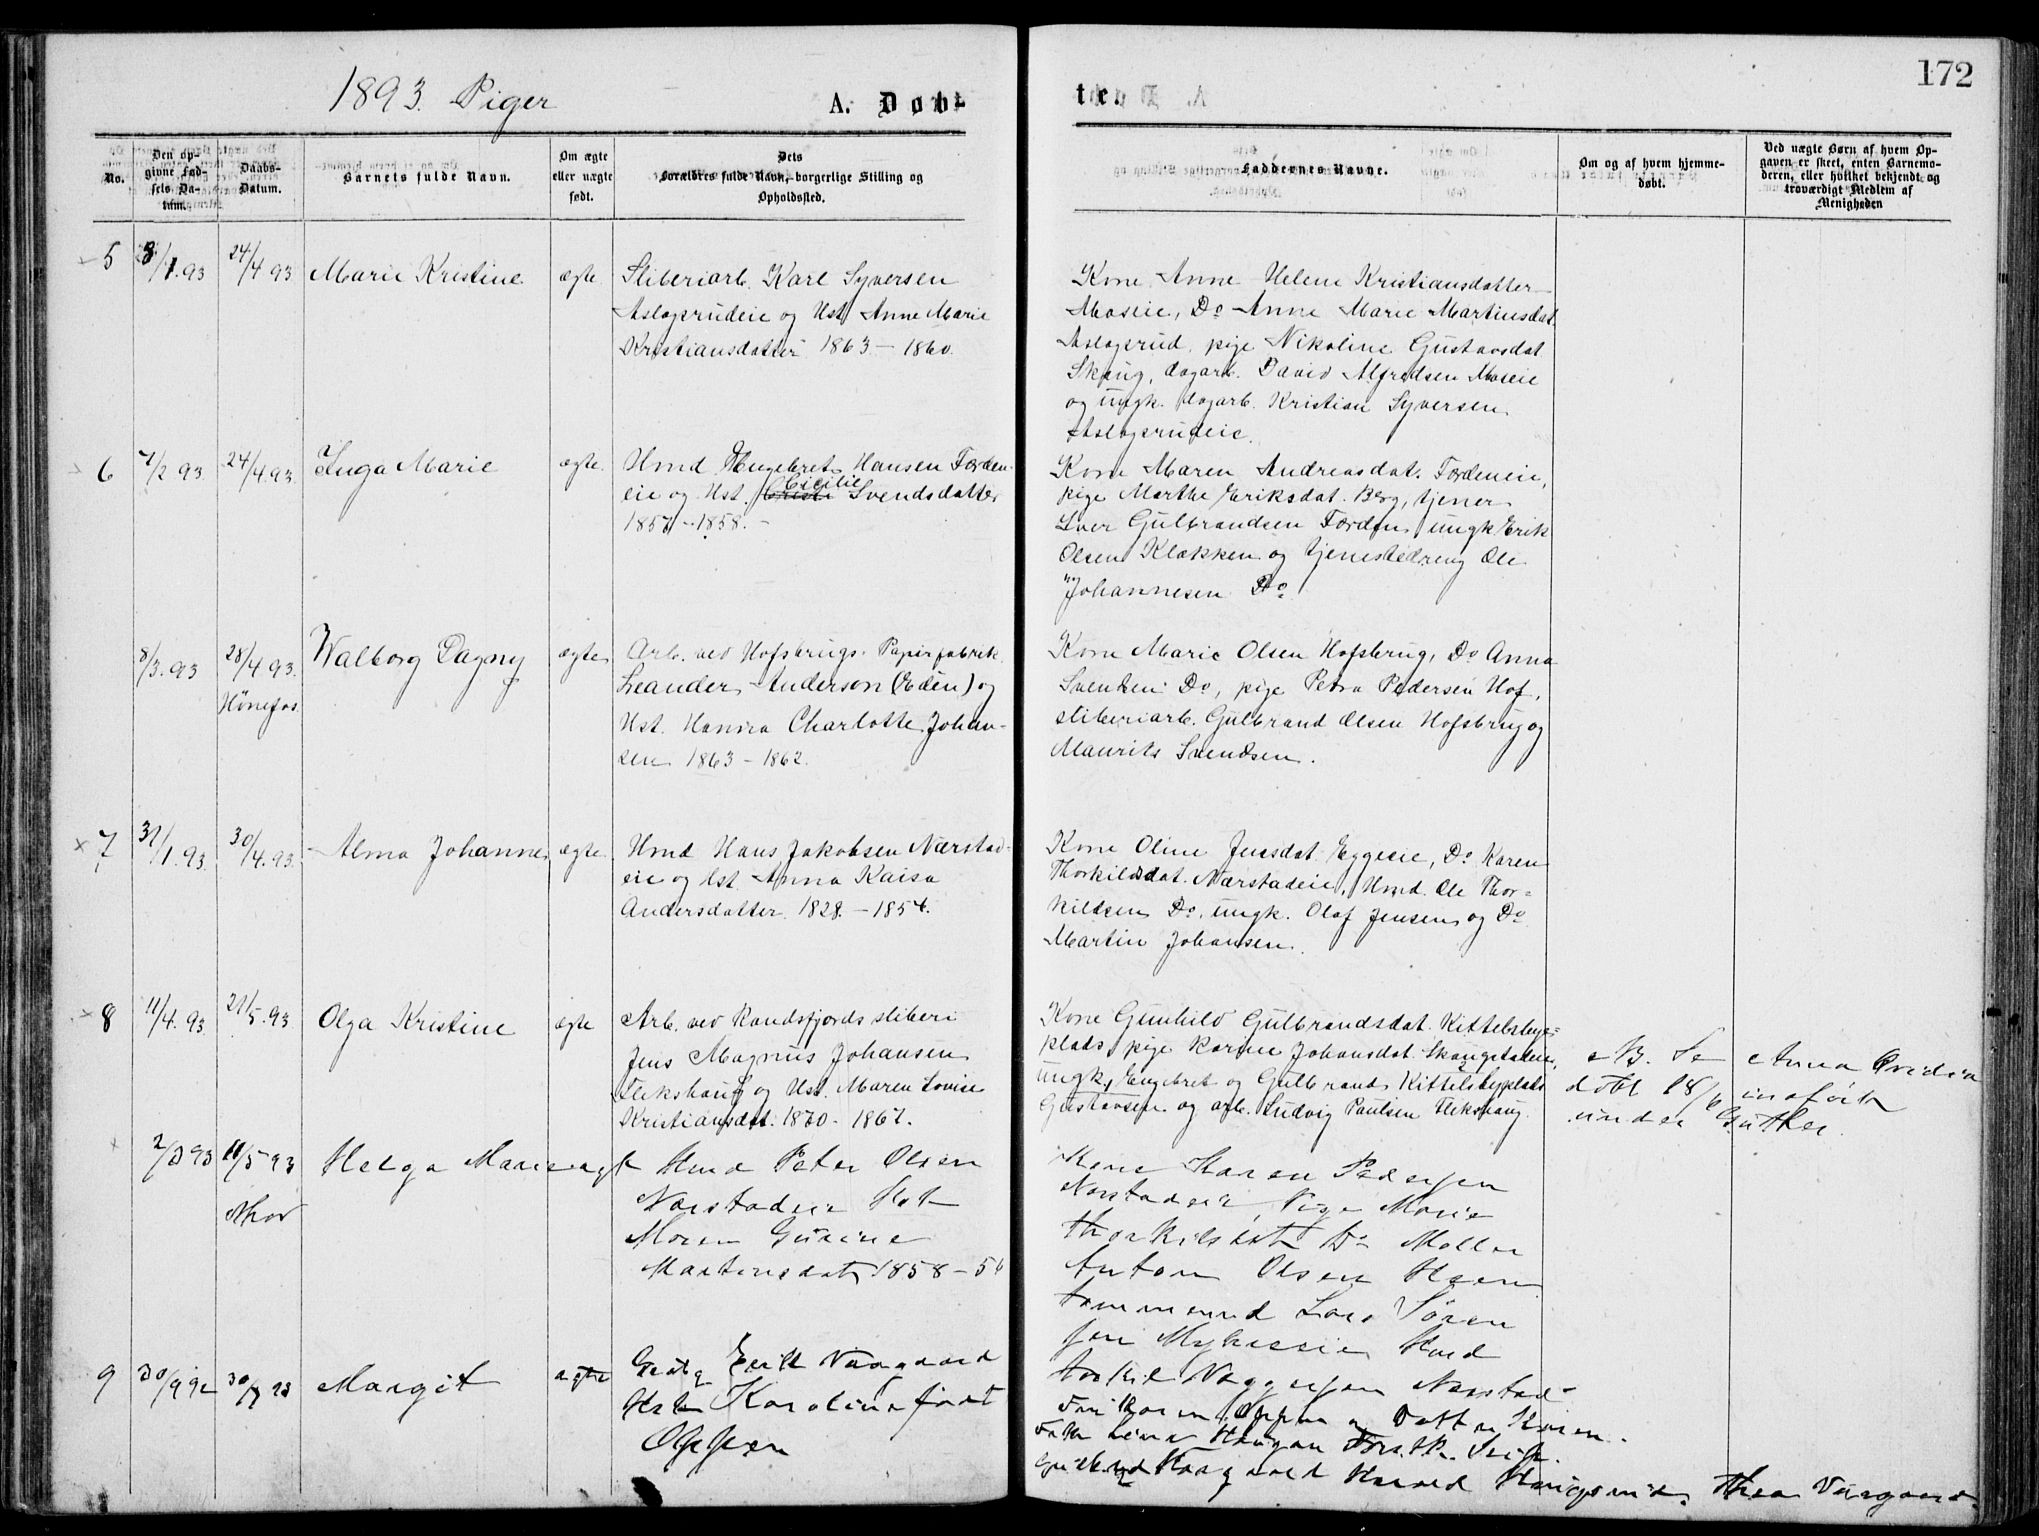 172
1893. Piger
A. Døb-
te.
No.
Den op-
givne Fød-
sels Da-
tum.
Daabs-
Datum.
Barnets fulde Navn.
Om ægte
eller uægte
født.
Dets
Forældres fulde Navn, borgerlige Stilling og
Opholdssted.
Faddernes Navne.
Om og af hvem hjemme-
døbt.
Ved uægte Børn af hvem Op-
gaven er skeet, enten Barnemo-
deren, eller hvilket bekjendt og
troværdigt Medlem af
Menigheden
5 3/1.93 24/4 93 Marie Kristine ægte
Sliberiarb. Karl Syversen
Aslagsrudeie og Hst. Anne Marie
Kristiansdatter 1863 - 1860.
Kone Anne Helene Kristiansdatter
Moseie, Do Anne Marie Martinsdat.
Aslagsrud, pige Nikoline Gustavsdat.
Skaug, dagarb. David Alfredsen Moseie
og ungk. dagarb. Kristian Syversen
Aslagsrudeie.
6 /2 93 24/4.93. Inga Marie ægte
Hmd Engebret Hansen Færden-
eie og Hst. Cicilie Svendsdatter
1857 - 1858. -
Kone Maren Andreasdat. Færdeneie,
pige Marthe Eriksdat. Berg, tjener
Iver Gulbrandsen Færden, ungk Erik
Olsen Klækken og tjenestedreng Ole
Johannesen Do.
8/3.93 28/4 93. Walborg Dagny ægte
Hønefos
Arb. ved Hofsbrugs Papirfabrik
Leander Anderson (Edén) og
Hst. Hanna Charlotte Johan-
sen 1863 - 1862.
Kone Marie Olsen Hofsbrug, Do Anna
Svendsen Do, pige Petra Pedersen Hof,
sliberiarb. Gulbrand Olsen Hofsbrug og
Maurits Svendsen.
7 31/1.93. 30/4.93. Alma Johanne ægte
Hmd Hans Jakobsen Nærstad-
eie og Hst. Anna Kaisa
Andersdatter 1828. - 1854.
Kone Oline Jensdat. Eggeeie, Do Karen
Thorkildsdat. Nærstadeie, Hmd. Ole Thor-
kildsen Do, ungk. Olaf Jensen og Do
Martin Johansen.
8 11/4.93. 21/5.93. Olga Kristine ægte
Arb. ved Randsfjords sliberi
Jens Magnus Johansen
Flekshaug og Hst. Maren Lovise
Kristiansdat. 1870 - 1867.
Kone Gunhild Gulbrandsdat. Kittelsbye-
plads, pige Karine Johansdat. Skaugstadeie,
ungk. Engebret og Gulbrand Kittelsbyplads
Gustavsen og arb. Ludvig Paulsen Flekshaug.
NB. Se Anna
døbt 18/6 indført
under Gutter.
2/3 93 11/5 93 Helga Marie ægte
Hmd Peter Olsen
Narstadeie Hst
Maren Gurine
Martinsdat 1858 - 56
Kone Karen Pedersen
Norstadeie, Pige Marie
Thorkilsdat Do Møller
Anton Olsen Hæn
tømmermd Lars Søren
sen Myhreeie Hmd
9 30/9 92 Margit ægte
Erik Vaagaard
Karoline født
Oppen
Karen Oppen
Haugen
Thea Vaagaard.